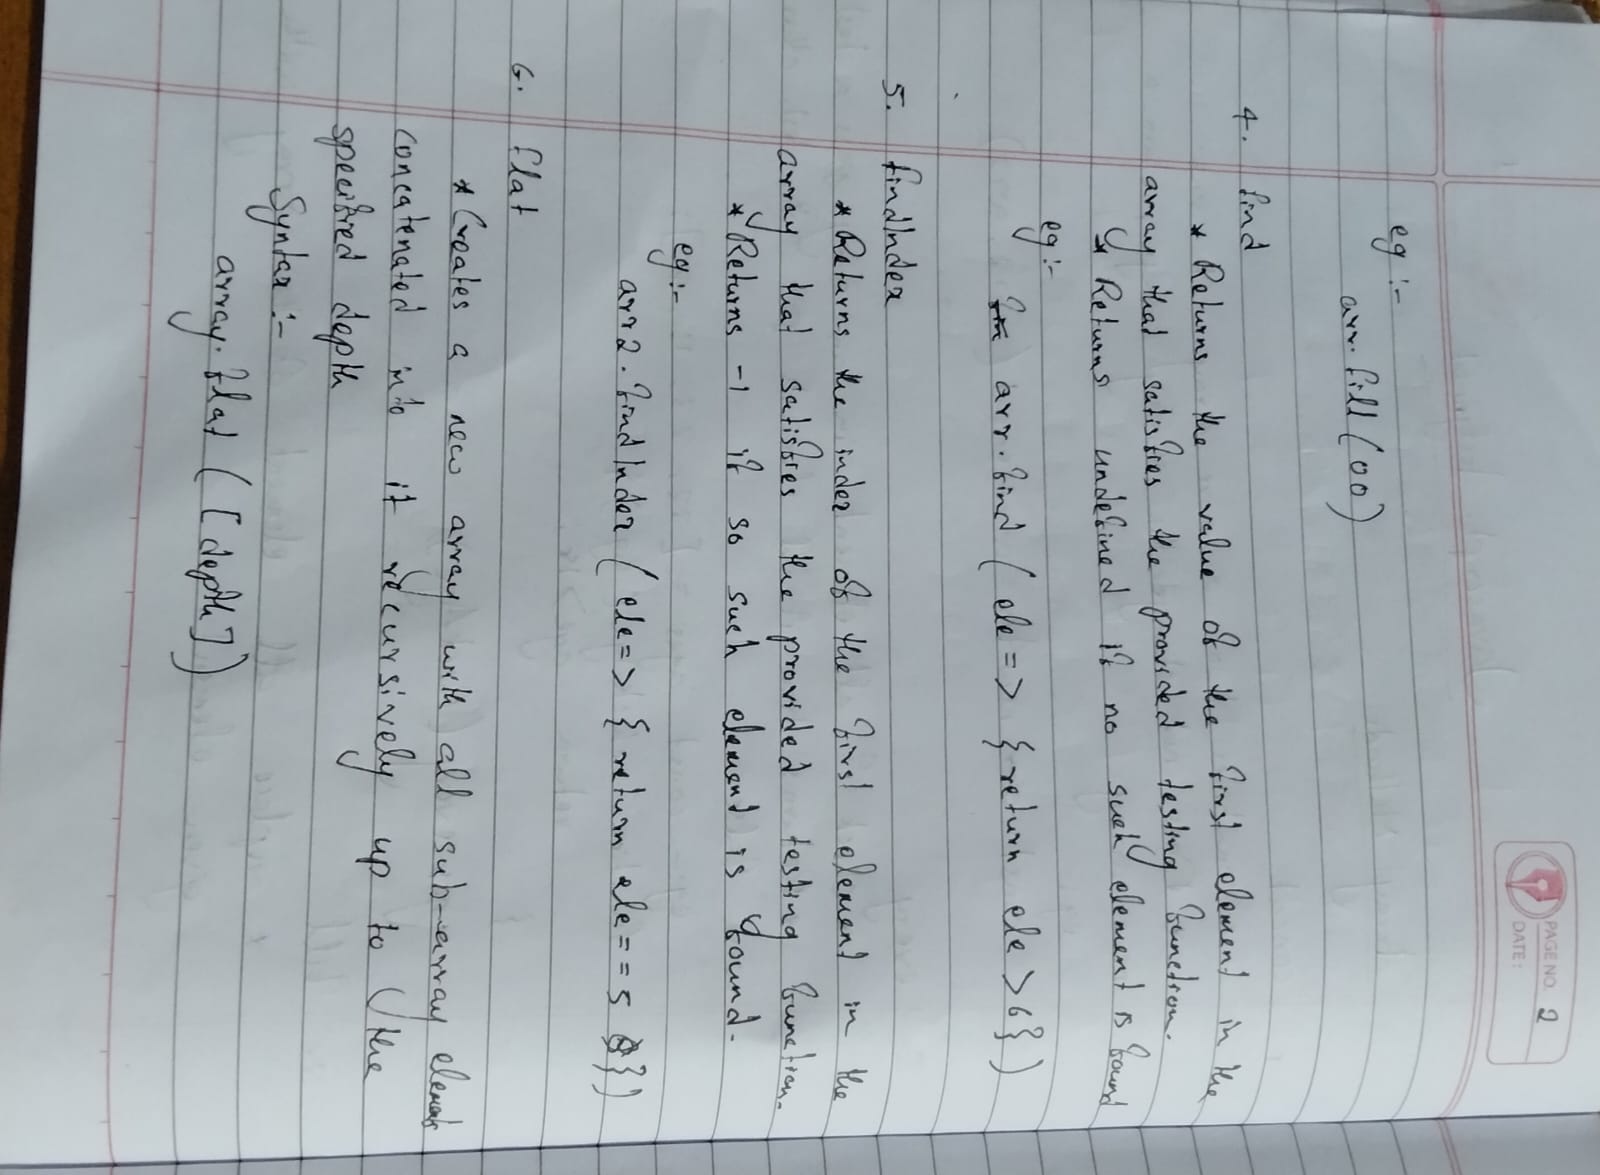 PAGE NO. 2
DATE:
eg :-
arr. fill (00)
4. find
* Returns the value of the first element in the
array that satisfies the provided testing function.
* Returns undefined if no such element is found
eg :-
arr. find ( ele => { return ele > 6 } )
5. findIndex
* Returns the index of the first element in the
array that satisfies the provided testing function.
* Returns -1 if so such element is found.
eg :-
arr2. findIndex ( ele => { return ele == 5 } )
6. flat
* Creates a new array with all sub-array elements
concatenated into it recursively up to the
specified depth
Syntax :-
array. flat ( [ depth ] )